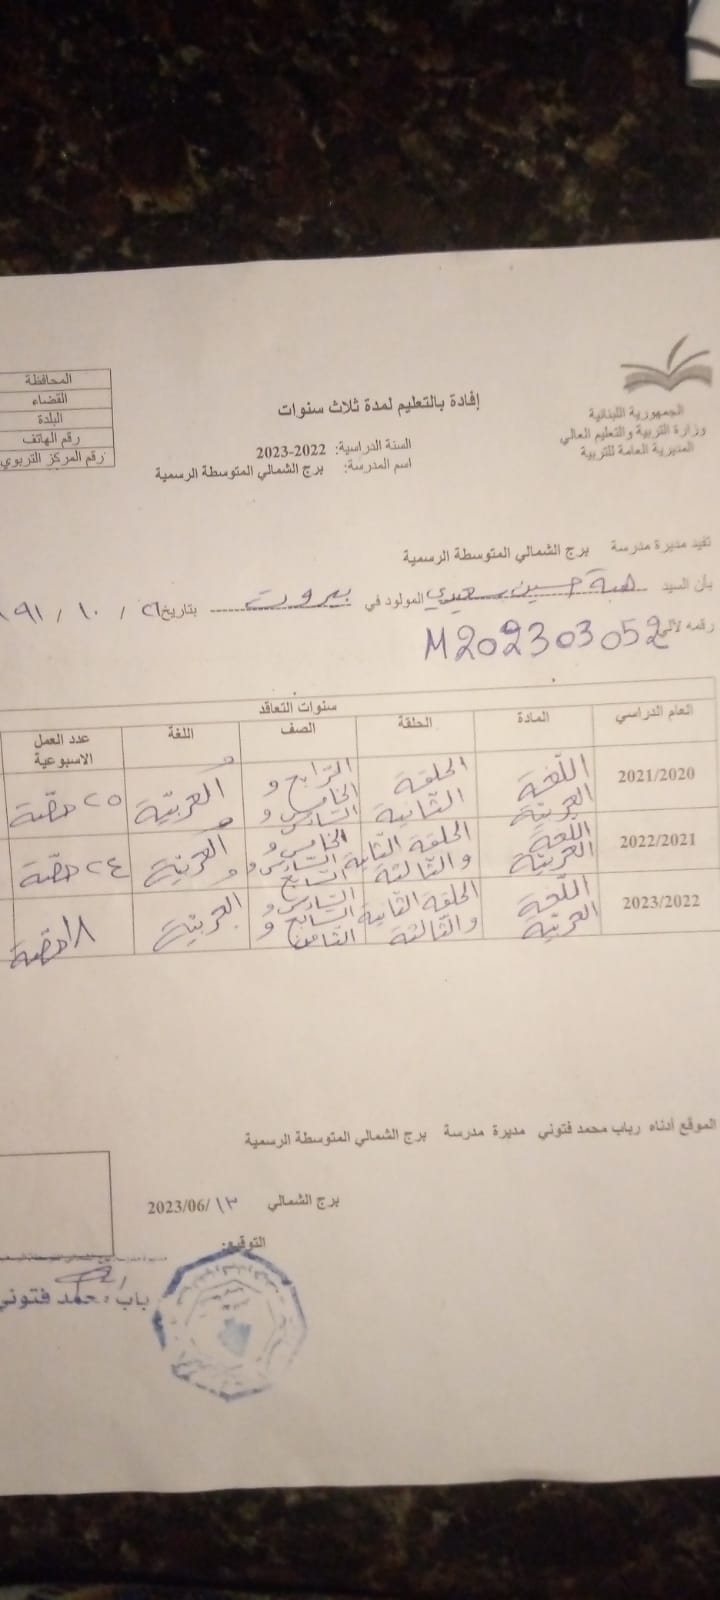 الجمهورية اللبنانية
وزارة التربية والتعليم العالي
المديرية العامة للتربية
إفادة بالتعليم لمدة ثلاث سنوات
السنة الدراسية: 2022-2023
اسم المدرسة: برج الشمالي المتوسطة الرسمية
المحافظة
القضاء
البلدة
رقم الهاتف
رقم المركز التربوي
تفيد مديرة مدرسة برج الشمالي المتوسطة الرسمية
بأن السيد هبة حسين سعيدي المولود في بيروت بتاريخ ٢٦ / ١٠ /
رقمه لآلي M202303052
سنوات التعاقد
العام الدراسي المادة الحلقة الصف اللغة عدد العمل الاسبوعية
2021/2020 اللّغة العربيّة الحلقة الثّانية الرّابع و الخامس و السادس العربيّة ٢٥ حصّة
2022/2021 اللّغة العربيّة الحلقة الثانية والثّالثة الخامس و السّادس و السّابع العربيّة ٢٤ حصّة
2023/2022 اللّغة العربيّة الحلقة الثانية والثّالثة السّادس و السّابع و الثّامن العربيّة ١٨ حصّة
الموقع أدناه رباب محمد فتوني مديرة مدرسة برج الشمالي المتوسطة الرسمية
برج الشمالي ١٣/2023/06
التوقيع:
محمد فتوني